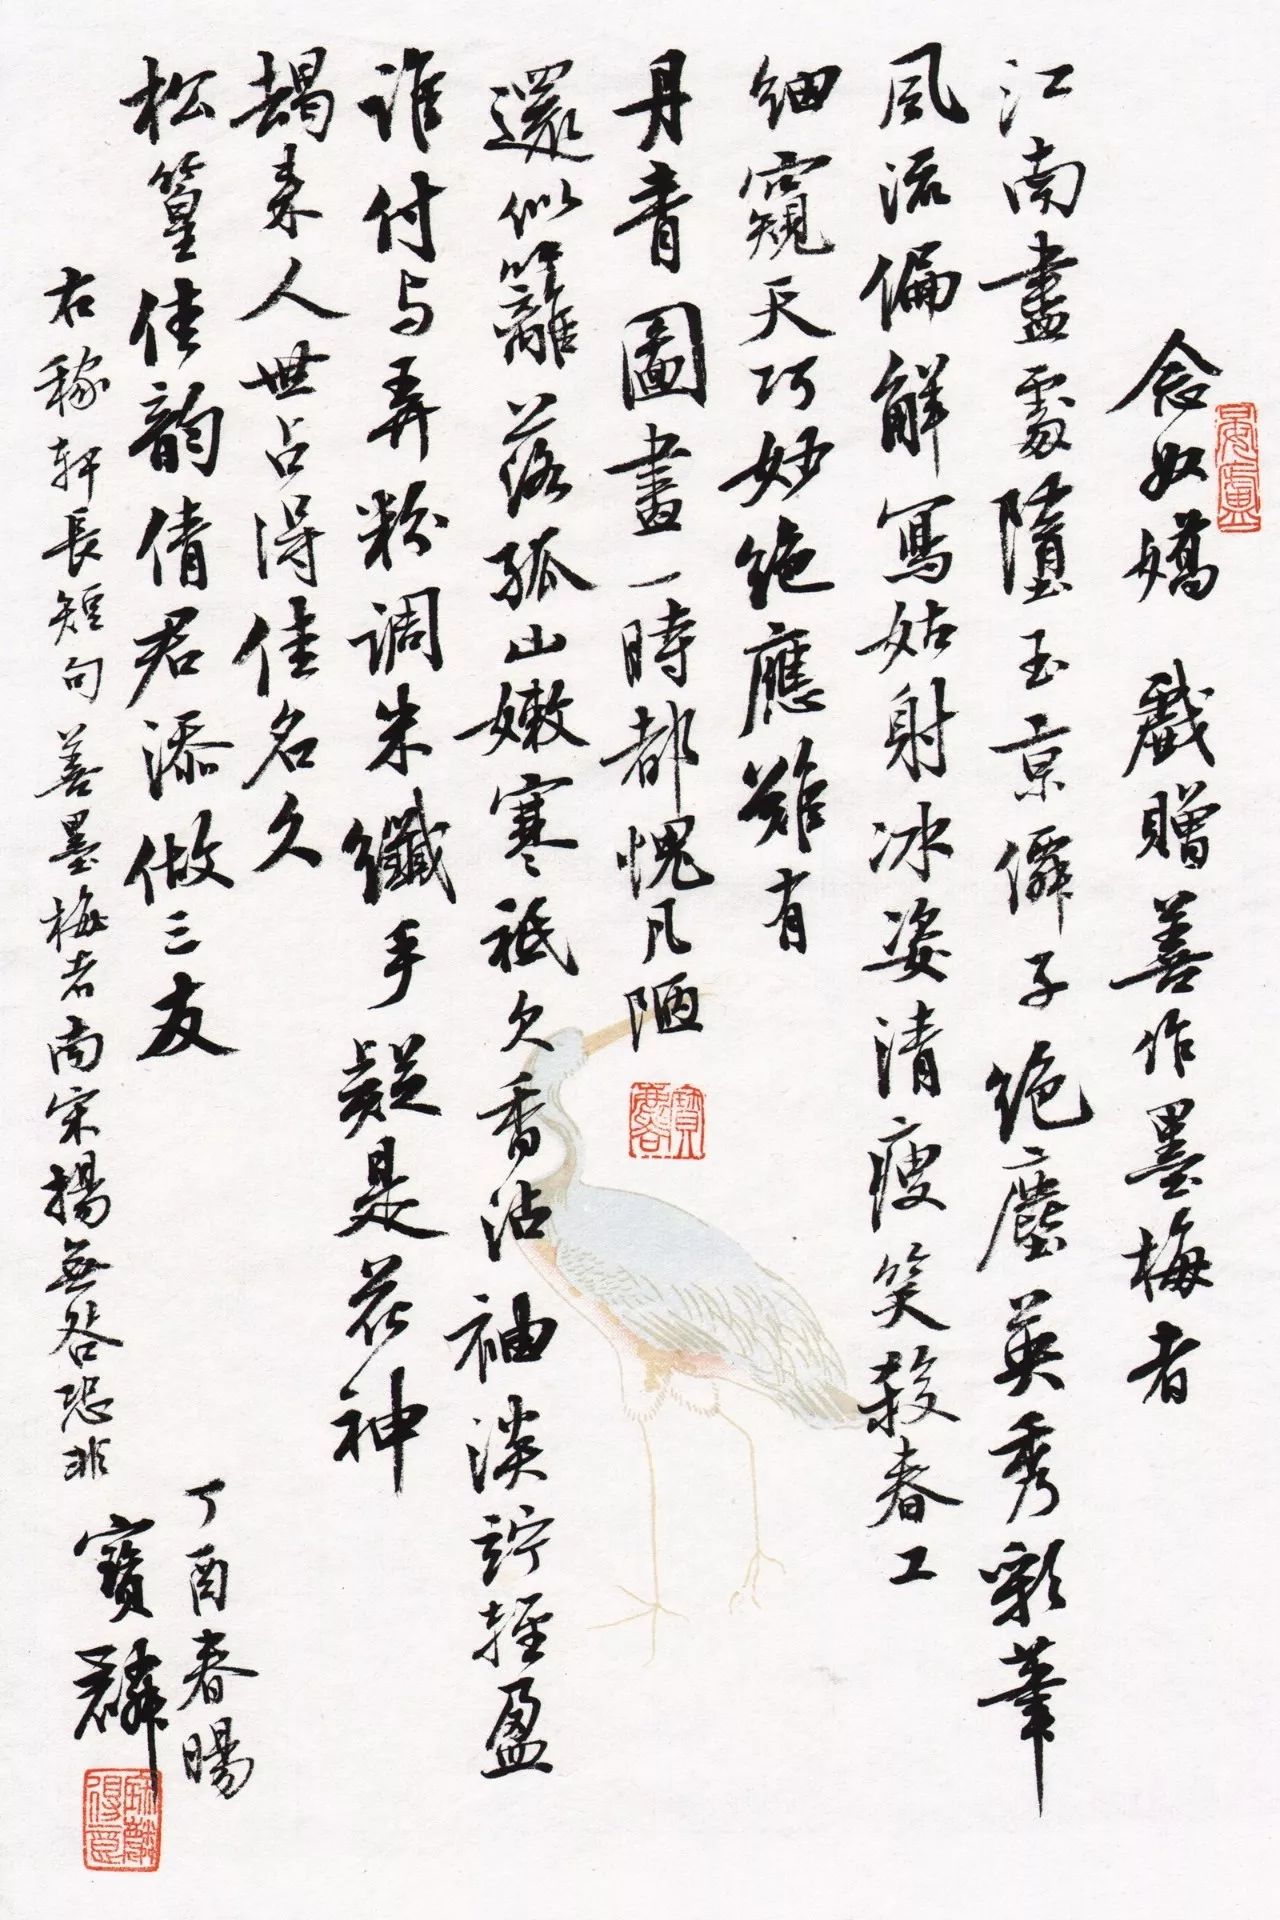 念奴嬌 戲贈善作墨梅者
江南盡處墮玉京僊子絶塵英秀彩筆
風流偏解寫姑射冰姿清瘦笑殺春工
細窺天巧妙絶應難有
丹青圖畫一時都愧凡陋
還似籬落孤山嫩寒祗欠香沾袖淡竚輕盈
誰付与弄粉調朱纖手疑是花神
朅来人世占得佳名久
松篁佳韵倩君添做三友
右稼軒長短句善墨梅者南宋揚無咎恐非
丁酉春暘
寶麟